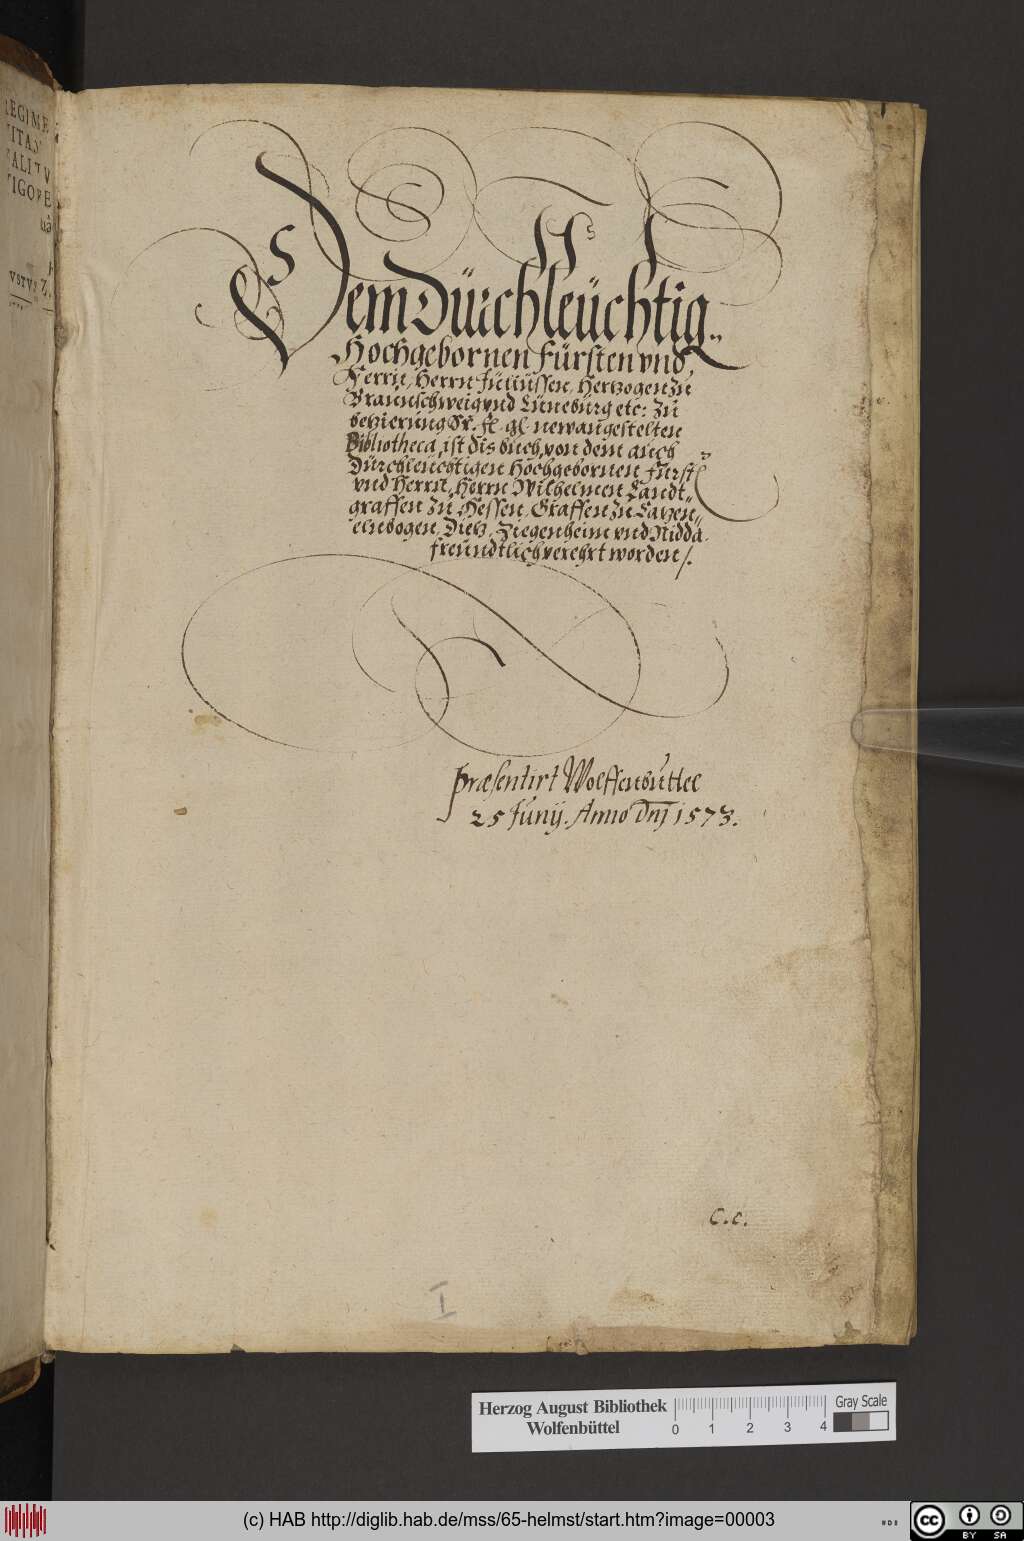 REGIME
VITAS
TALITV
TIGORE
uà
VSTVS Z.
Dem Dürchleüchtig„
Hochgebornen Fürsten vnd
Herrn, Herrn Jüliüssen, Hertzogen zü
Braünschweig vnd Lünebürg etc: zü
betzierüng Sr. fl. gl. newangestelten
Bibliotheca, ist dis buch, von dem auch
Dürchleüchtigen Hochgebornen Fürst
vnd Herrn, Herrn Wilhelmen Landt„
graffen zü Hessen, Graffen zü Catzen„
elnbogen, Dietz, Ziegenheim vnd Nidda
freündtlich verehrt worden /.
præsentirt Wolffenbüttel
25 Junij. Anno Dnj 1573.
C.c.
I
Herzog August Bibliothek
Wolfenbüttel
0 1 2 3 4
Gray Scale
(c) HAB http://diglib.hab.de/mss/65-helmst/start.htm?image=00003
cc BY SA